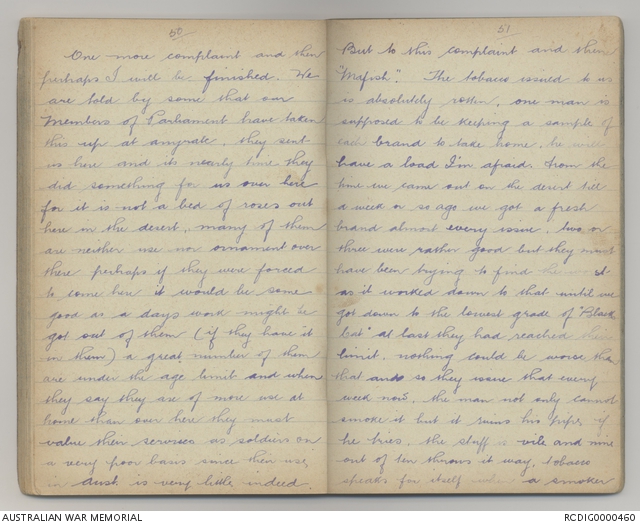 50
One more complaint and then
perhaps I will be finished. We
are told by some that our
Members of Parliament have taken
this up at anyrate, they sent
us here and its nearly time they
did something for us over here
for it is not a bed of roses out
here in the desert, many of them
are neither use nor ornament over
there perhaps if they were forced
to come here it would be some
good as a days work might be
got out of them (if they have it
in them) a great number of them
are under the age limit and when
they say they are of more use at
home than over here they must
value their services as soldiers on
a very poor basis since their use
in Aust. is very little indeed.
51
But to this complaint and then
"Mafish". The tobacco issued to us
is absolutely rotten, one man is
supposed to be keeping a sample of
each brand to take home, he will
have a load I'm afraid. From the
time we came out on the desert till
a week or so ago we got a fresh
brand almost every issue, two or
three were rather good but they must
have been trying to find the
as it worked down to that until we
got down to the lowest grade of "Black
Cat" at last they had reached their
limit, nothing could be worse than
that and so they issue that every
week now. the man not only cannot
smoke it but it ruins his pipe if
he tries. the stuff is vile and nine
out of ten throws it way, tobacco
speaks for itself when a smoker
AUSTRALIAN WAR MEMORIAL
RCDIG0000460